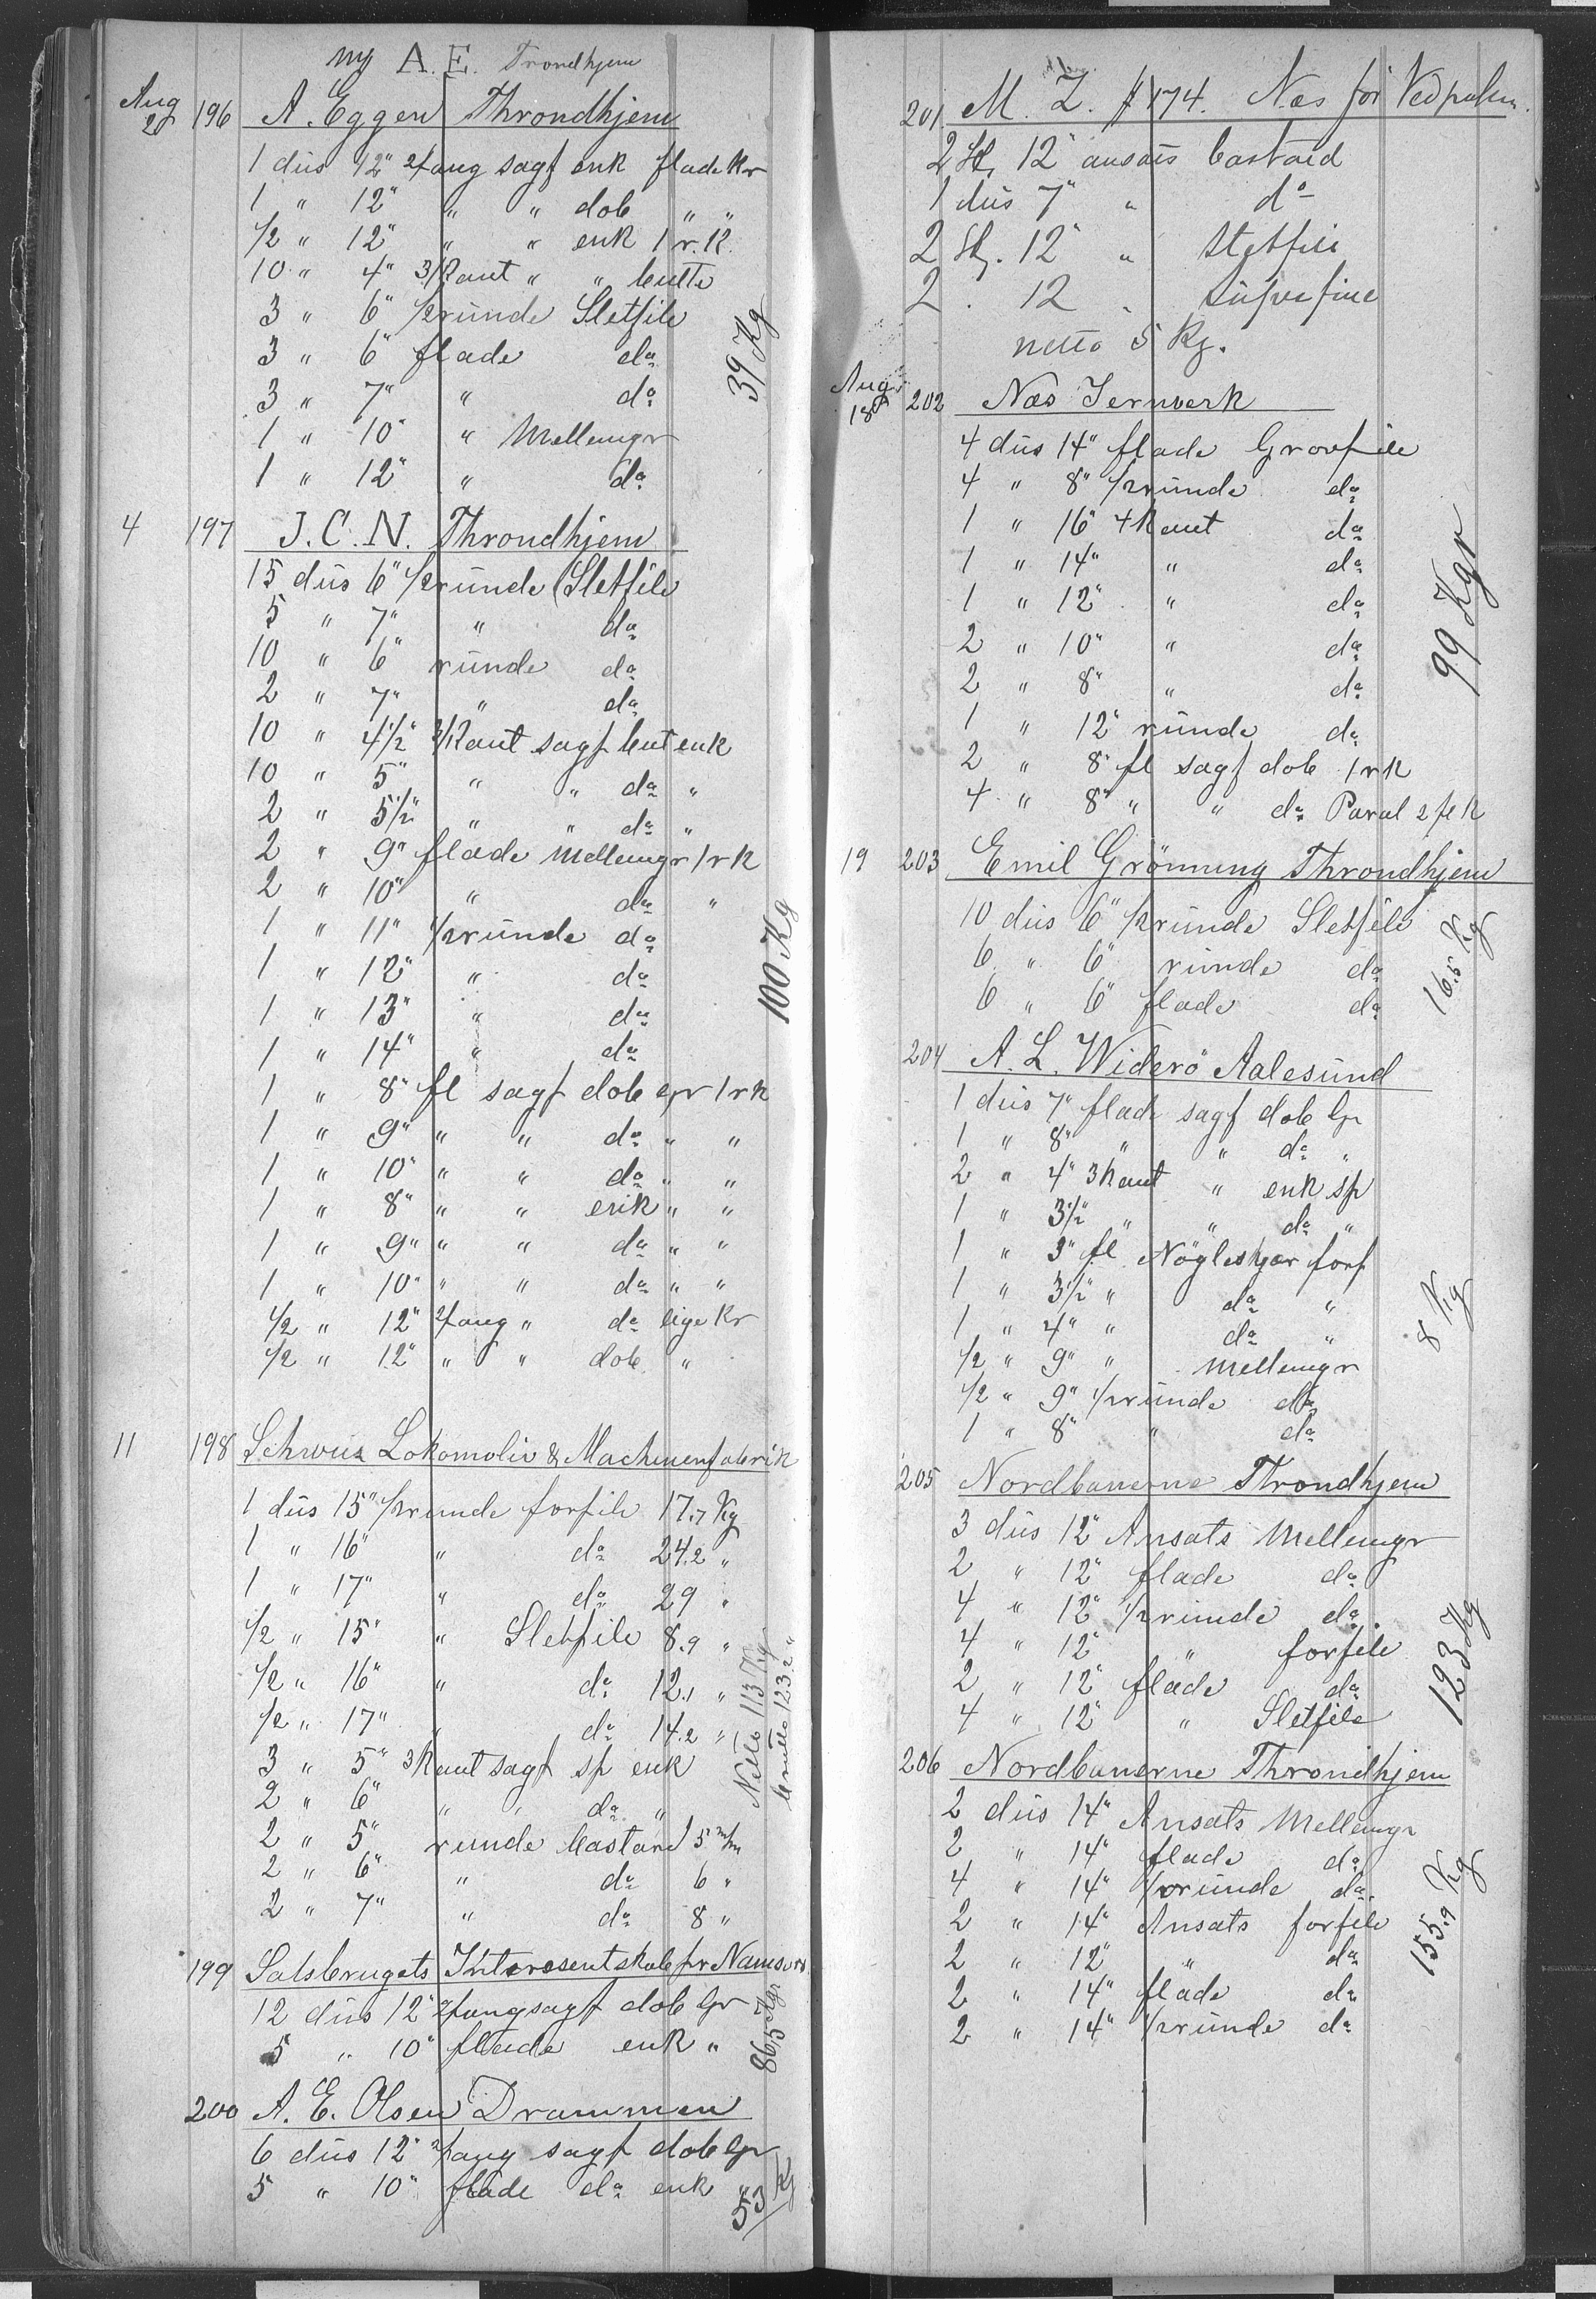 ny A. E. Trondhjem
Aug 2 196 A. Eggen Throndhjem
1 düs 12" 2/ang sagf enk flade kr
1 " 12" " " dob " "
1/2 " 12" " " enk 1 r. K.
10 " 4" 3/Kant " " butte
3 " 6" 1/2 runde Sletfile
3 " 6" flade do
3 " 7" " do
1 " 10" " Mellemgr
1 " 12" " do
39 Kg
4 197 J. C. N. Throndhjem
15 düs 6" 1/2 ründe Sletfile
5 " 7" " do
10 " 6" ründe do
2 " 7" " do
10 " 4 1/2" 3/Kant sagf but enk
10 " 5" " " do "
2 " 5 1/2" " " do "
2 " 9" flade Mellemgr 1 r K
2 " 10" " do "
1 " 11" 1/2 ründe do
1 " 12" " do
1 " 13" " do
1 " 14" " do
1 " 8" fl sagf dob gr 1 r K
1 " 9" " " do " "
1 " 10" " " do " "
1 " 8" " " enk " "
1 " 9" " " do " "
1 " 10" " " do " "
1/2 " 12" 2/ang " do lige Kr
1/2 " 12" " " dob "
100 Kg
11 198 Schweiz Lokomotiv & Machinenfabrik
1 düs 15" 1/2 runde forfile 17.7 Kg
1 " 16" " do 24.2 "
1 " 17" " do 29 "
1/2 " 15" " Sletfile 8.9 "
1/2 " 16" " do 12.1 "
1/2 " 17" " do 14.2 "
3 " 5" 3 Kant sagf sp enk
2 " 6" " " do "
2 " 5" runde bastard 5 m/m
2 " 6" " do 6 "
2 " 7" " do 8 "
Netto 113 Kg
brutto 123.2 "
199 Salsbrugets Interesentskab pr Namsos
12 düs 12" 2/ang sagf dob gr
5 " 10" flade enk "
86.5 Kgr
200 A. E. Olsen Drammen
6 düs 12" 2/ang sagf dob gr
5 " 10" flade do enk "
53 Kg
201 M. Z. # 174. Næs for
2 Stk. 12" ansats bastard
1 düs 7" " do
2 Stk. 12" " Sletfile
2 . 12 " Süperfine
netto 5 Kg.
Aug 18 202 Næs Jernverk
4 düs 14" flade Grovfile
4 " 8" 1/2 ründe do
1 " 16" 4 Kant do
1 " 14" " do
1 " 12" " do
2 " 10" " do
2 " 8" " do
1 " 12" ründe do
2 " 8" fl sagf dob 1 r K
4 " 8" " " do Paral 2 fl K
99 Kgr
19 203 Emil Grönning Throndhjem
10 düs 6" 1/2 ründe Sletfile
6 " 6" ründe do
6 " 6" flade do
16.5 Kg
204 A. L. Widerö Aalesund
1 düs 7" flade sagf dob gr
1 " 8" " " do "
2 " 4" 3 Kant " enk sp
1 " 3 1/2" " " do "
1 " 3" fl Nögleskjær forf
1 " 3 1/2" " do "
1 " 4" " do "
1/2 " 9" " Mellemgr
1/2 " 9" 1/2 ründe do
1 " 8" " do
8 Kg
205 Nordbanerne Throndhjem
3 düs 12" Ansats Mellemgr
2 " 12" flade do
4 " 12" 1/2 ründe do
4 " 12" " forfile
2 " 12" flade do
4 " 12" " Sletfile
123 Kg
206 Nordbanerne Throndhjem
2 düs 14" Ansats Mellemgr
2 " 14" flade do
4 " 14" 1/2 ründe do
2 " 14" Ansats forfile
2 " 12" " do
2 " 14" flade do
2 " 14" 1/2 ründe do
155.9 Kg